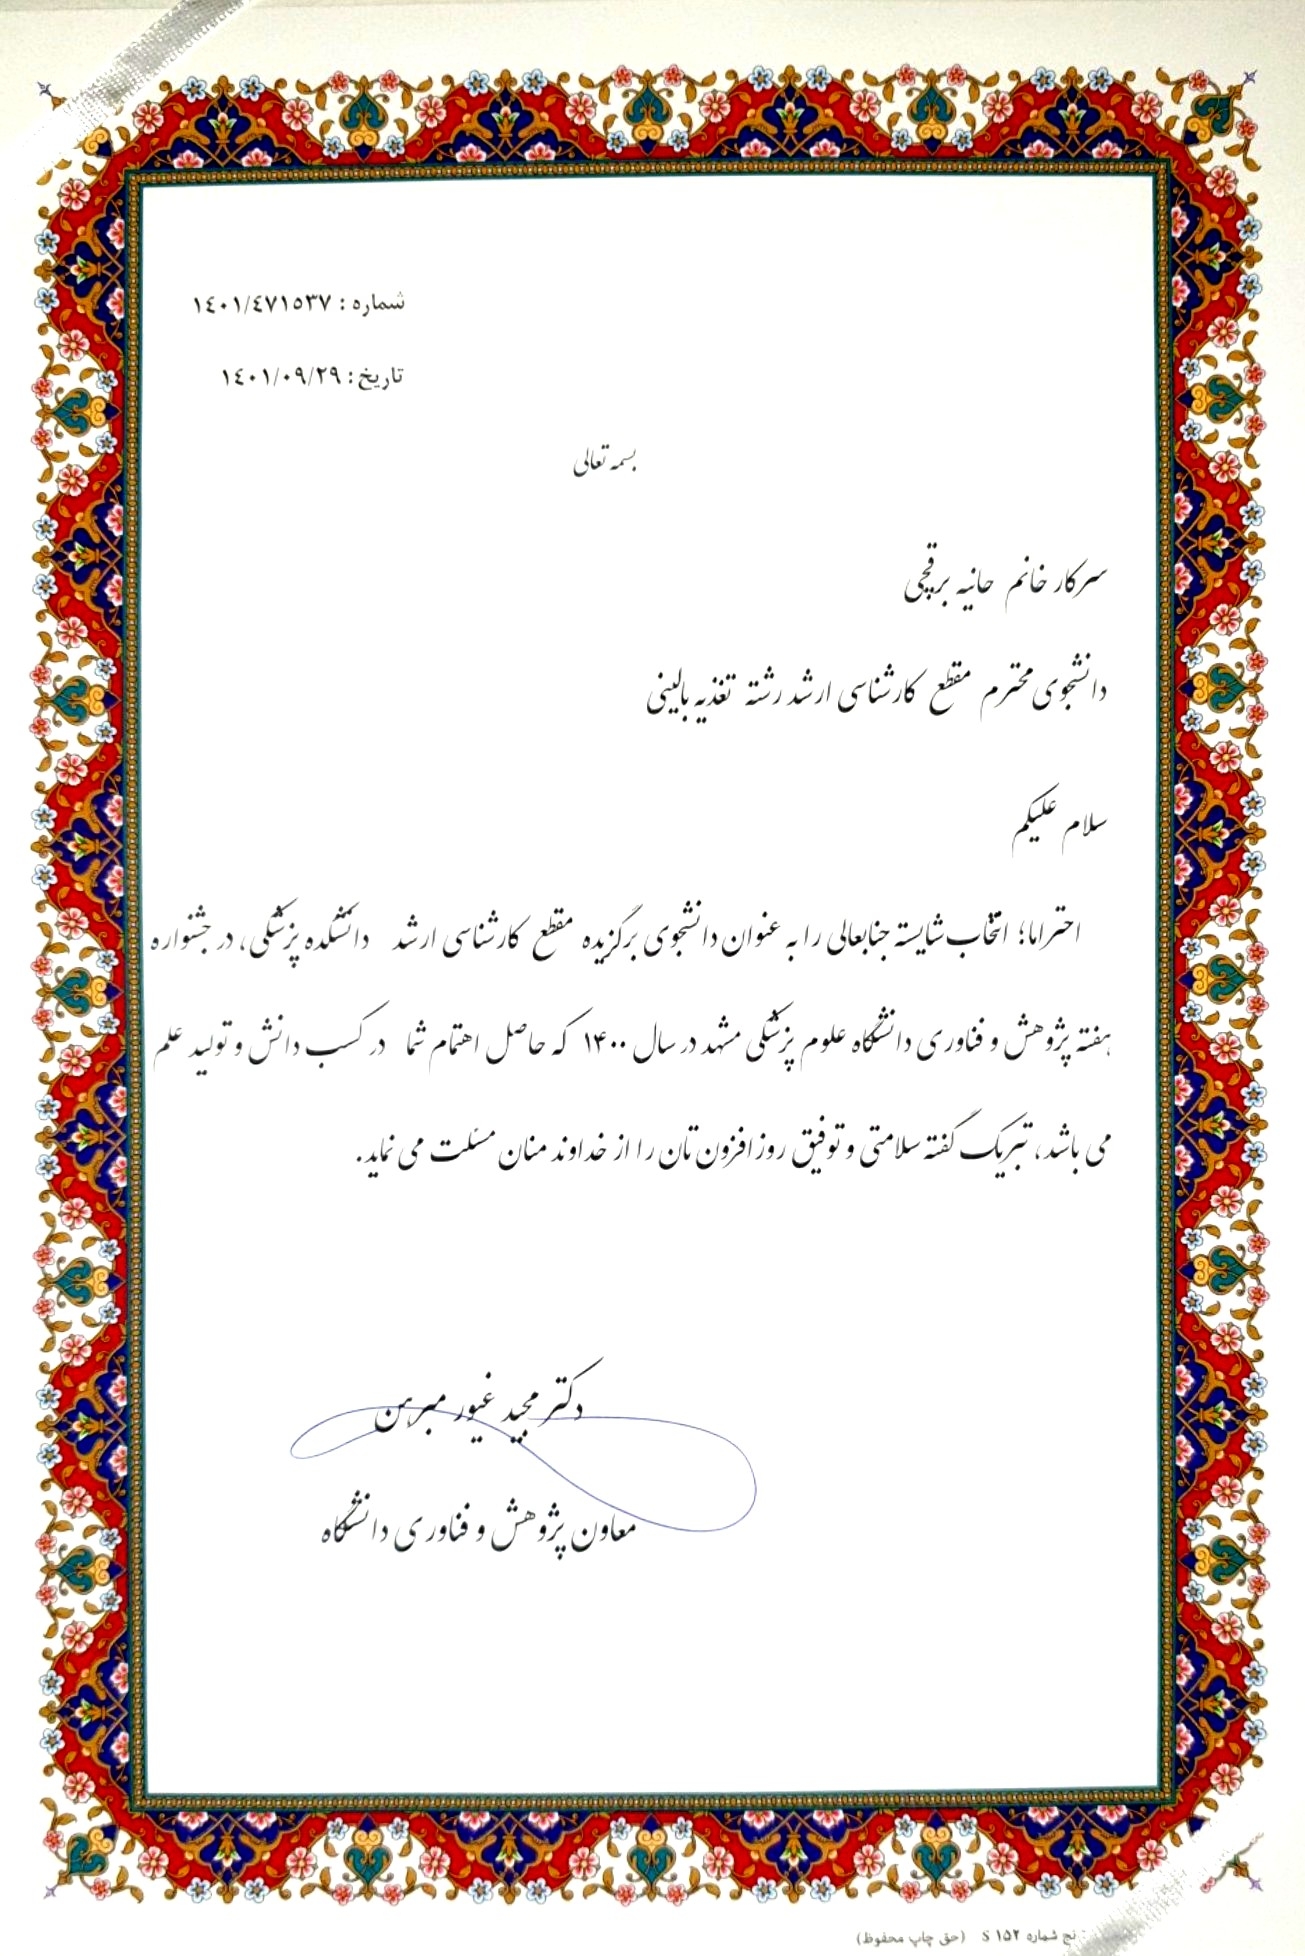 شماره : ١٤٠١/٤٧١٥٣٧
تاریخ : ١٤٠١/٠٩/٢٩
بسمه تعالی
سرکار خانم حانیه برقچی
دانشجوی محترم مقطع کارشناسی ارشد رشته تغذیه بالینی
سلام علیکم
احتراما؛ انتخاب شایسته جنابعالی را به عنوان دانشجوی برگزیده مقطع کارشناسی ارشد دانشکده پزشکی، در جشنواره
هفته پژوهش و فناوری دانشگاه علوم پزشکی مشهد در سال ۱۴۰۰ که حاصل اهتمام شما در کسب دانش و تولید علم
می باشد، تبریک گفته سلامتی و توفیق روز افزون تان را از خداوند منان مسئلت می نماید.
دکتر مجید غیور مبرهن
معاون پژوهش و فناوری دانشگاه
شماره S ۱۵۲ (حق چاپ محفوظ)